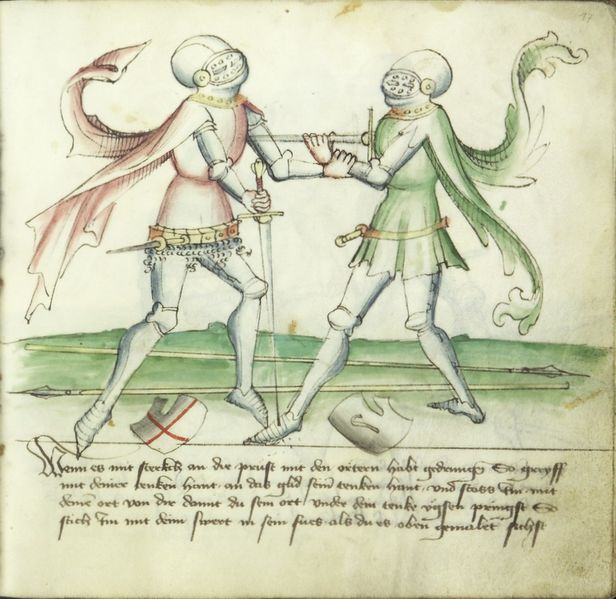 17
Wenn es mit sterckh an die prust mit den ortern habt gedrungen So greyff
mit deiner tenken hant an das glid seiner tenken hant und stoss Im mit
deme ort von dir damit du sein ort under dein tenke ygsen pringst So
stich Im mit deim swert in sein fues als du es oben gemalet sichst